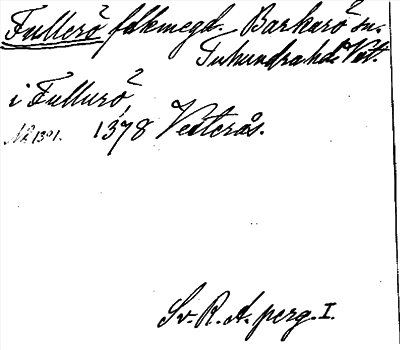 Fullerö fak megd. Barkarö sn.
Tuhundra hd Vstl.
i Fullurö,
Nr 1301. 1378 Vesterås.
Sv. R. A. perg. I.